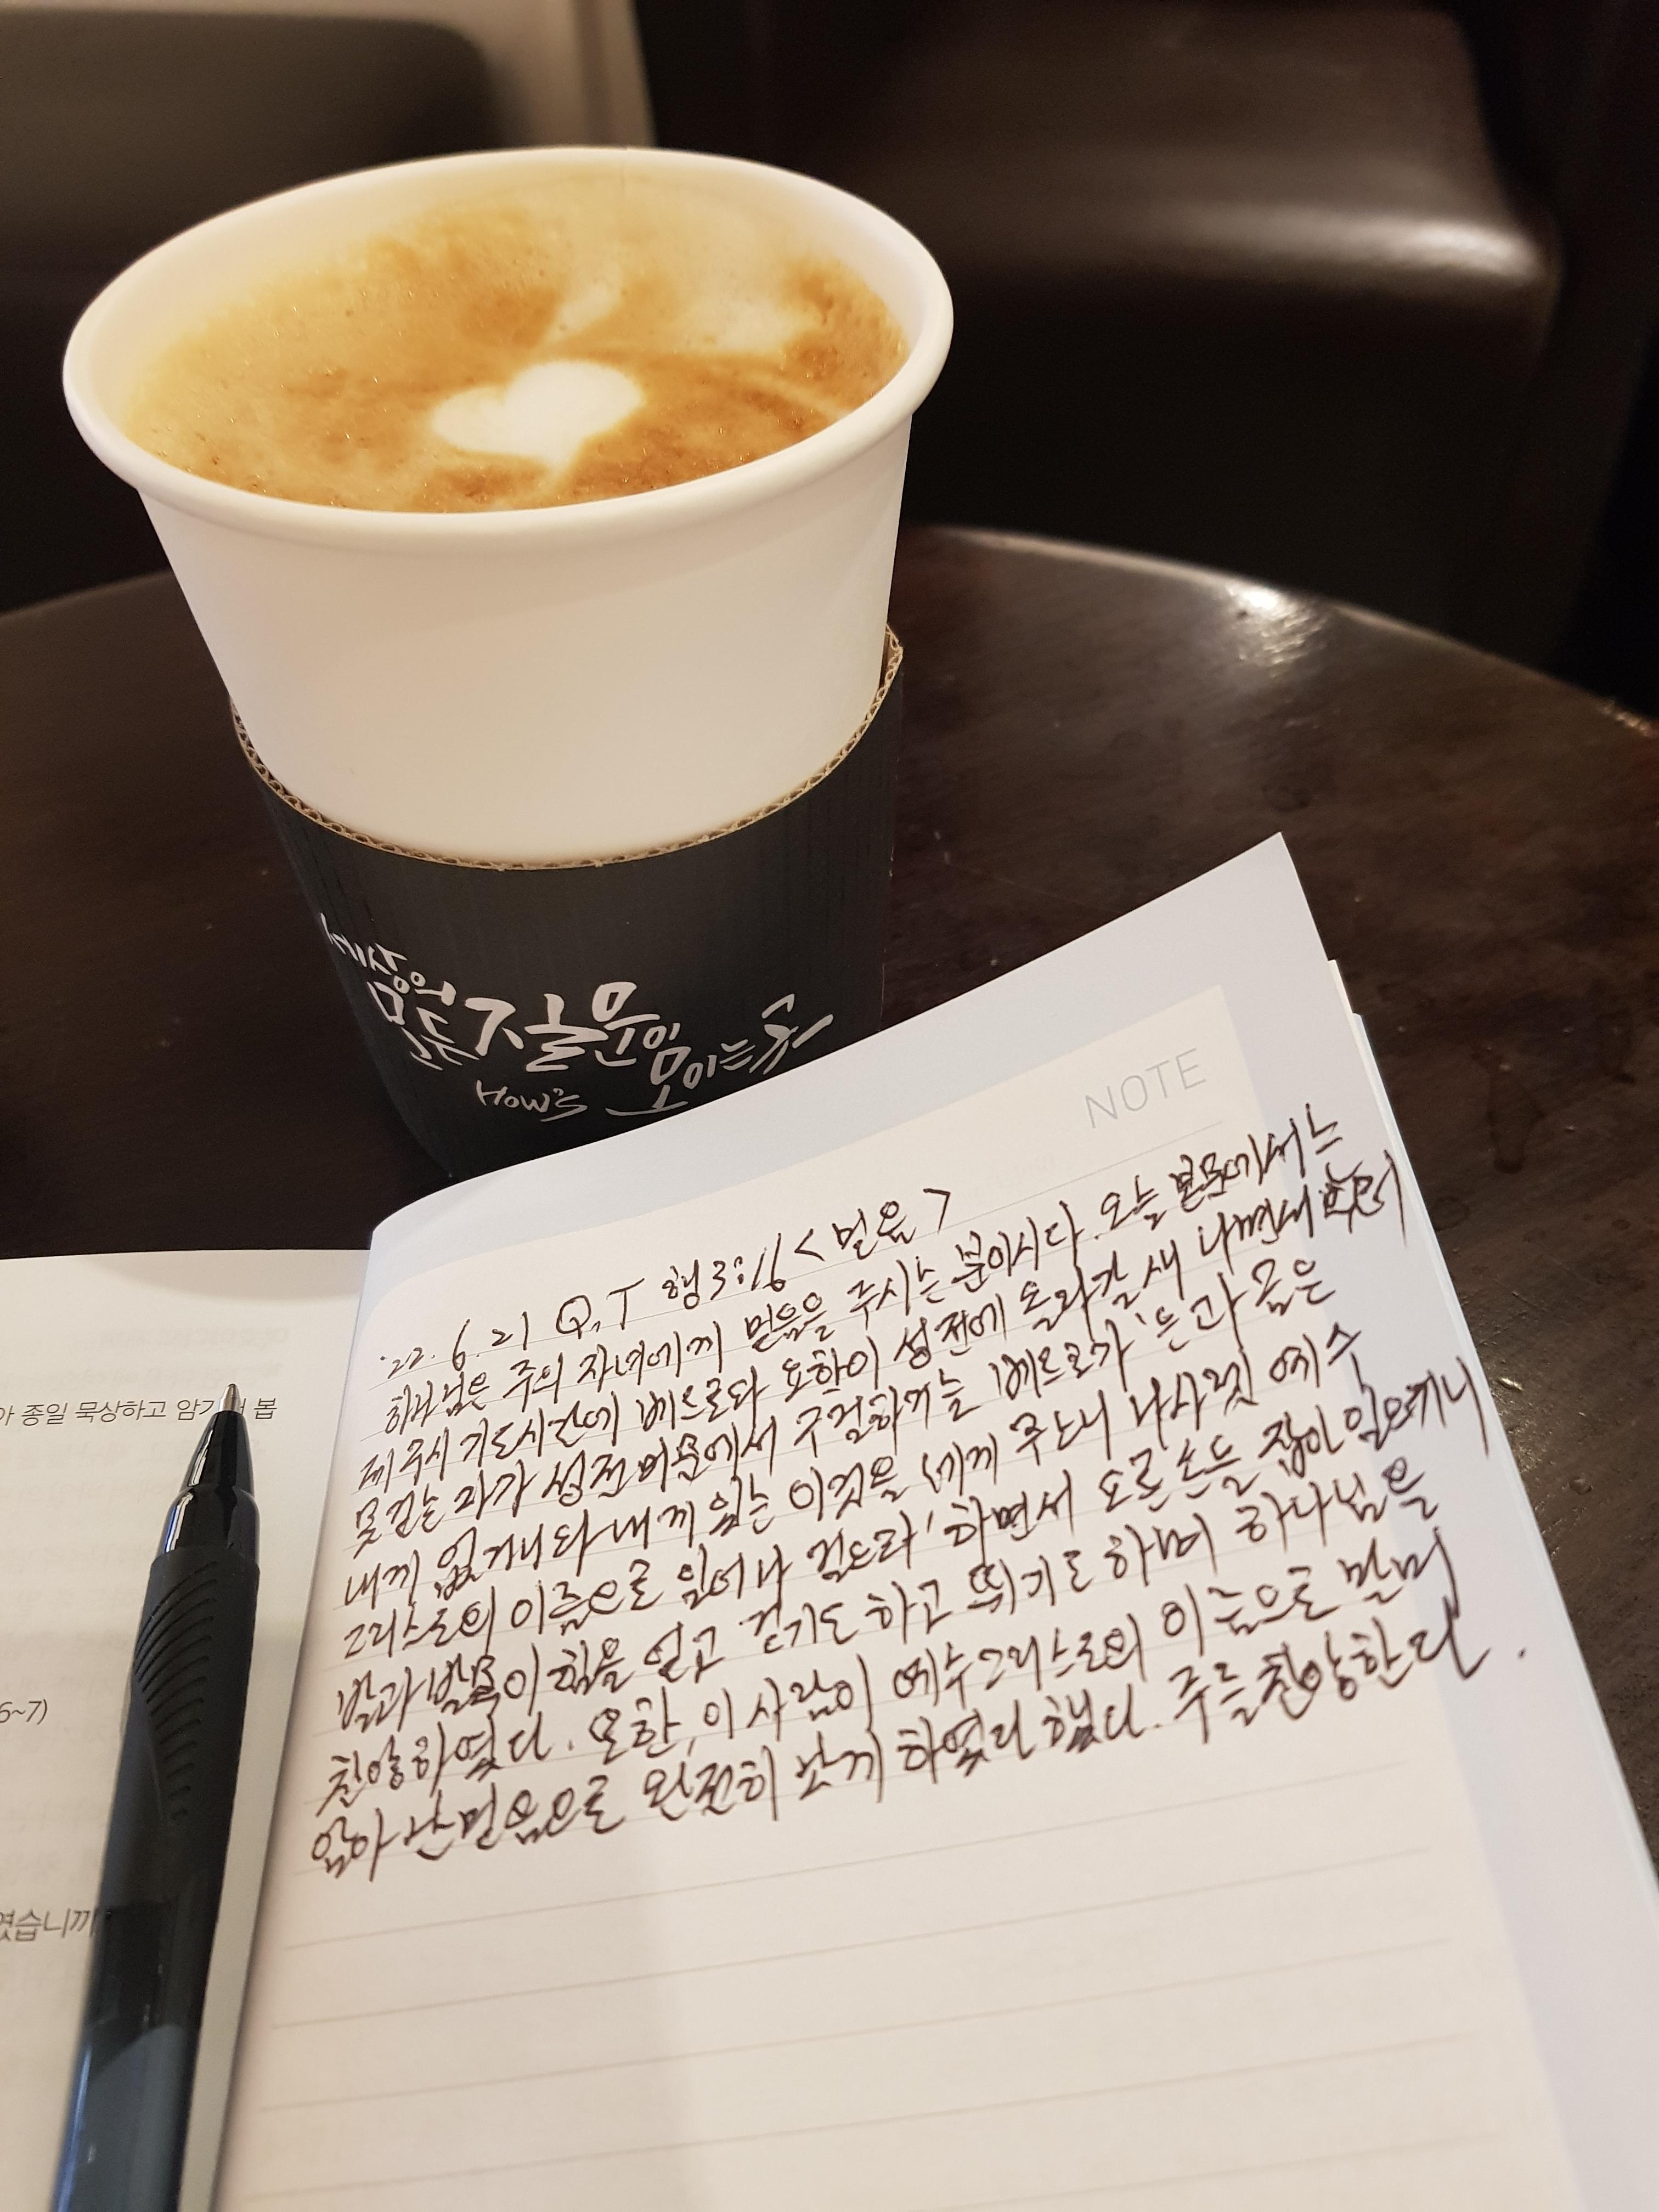 세상의
모든 질문이
모이는 곳
HOW's
NOTE
'22. 6. 21 Q.T 행3:16 <믿음>
하나님은 주의 자녀에게 믿음을 주시는 분이시다. 오늘 본문에서는
제 구시 기도시간에 베드로와 요한이 성전에 올라갈새 나면서
못걷는 자가 성전 미문에서 구걸하거늘 '베드로가 '은과 금은
내게 없거니와 내게 있는 이것을 네게 주노니 나사렛 예수
그리스도의 이름으로 일어나 걸으라' 하면서 오른손을 잡아 일으키니
발과 발목이 힘을 얻고 걷기도 하고 뛰기도 하며 하나님을
찬양하였다. 또한, 이 사람이 예수그리스도의 이름으로 말미
암아 난 믿음으로 완전히 낫게 하였다 했다. 주를 찬양한다.
종일 묵상하고
6~7)
였습니까